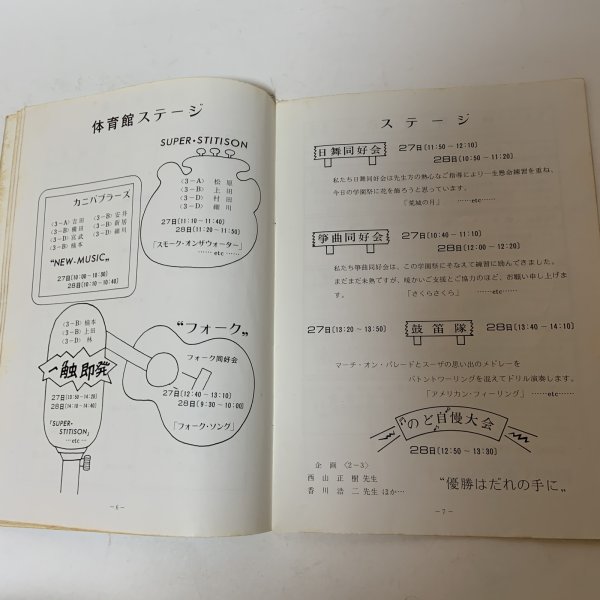 体育館ステージ
SUPER・STITISON
〈3-A〉松原
〈3-B〉上田
〈3-D〉村田
〈3-D〉細川
27日〔11:10~11:40〕
28日〔11:20~11:50〕
「スモーク・オンザウォーター」
……etc……
カニバブラーズ
〈3-A〉吉田 〈3-B〉安井
〈3-B〉横田 〈3-B〉新居
〈3-D〉宮武 〈3-D〉細川
〈3-B〉楠本
"NEW-MUSIC"
27日〔10:00~10:30〕
28日〔10:10~10:40〕
〈3-B〉楠本
〈3-B〉上田
〈3-D〉林
一触即発
27日〔13:50~14:20〕
28日〔14:10~14:40〕
「SUPER・
STITISON」
…etc…
"フォーク"
フォーク同好会
27日〔12:40~13:10〕
28日〔9:30~10:00〕
「フォーク・ソング」
-6-
ステージ
日舞同好会
27日〔11:50~12:10〕
28日〔10:50~11:20〕
私たち日舞同好会は先生方の熱心なご指導により一生懸命練習を重ね、
今日の学園祭に花を飾ろうと思っています。
「荒城の月」 ……etc……
箏曲同好会
27日〔10:40~11:10〕
28日〔12:00~12:20〕
私たち箏曲同好会は、この学園祭にそなえて練習に励んできました。
まだまだ未熟ですが、暖かいご支援とご協力のほど、お願い申し上げま
す。 「さくらさくら」 ……etc……
27日〔13:20~13:50〕 鼓笛隊 28日〔13:40~14:10〕
マーチ・オン・パレードとスーザの思い出のメドレーを
バトントワーリングを混えてドリル演奏します。
「アメリカン・フィーリング」 ……etc……
のど自慢大会
28日〔12:50~13:30〕
企画 〈2-3〉
西山正樹先生
香川浩二先生 ほか…
"優勝はだれの手に"
-7-